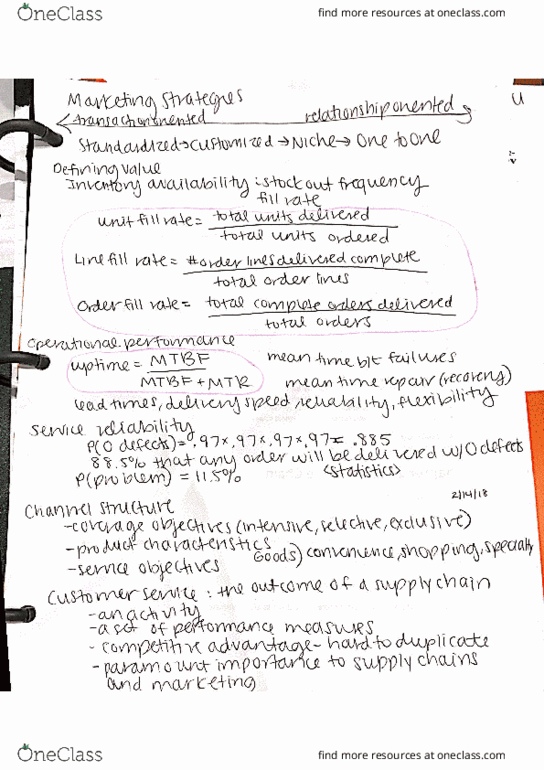 OneClass
find more resources at oneclass.com
Marketing Strategies
transaction oriented relationship oriented
Standardized → Customized → Niche → One to One
Defining Value
Inventory availability : stock out frequency
fill rate
unit fill rate = total units delivered
total units ordered
Line fill rate = # order lines delivered complete
total order lines
Order fill rate = total complete orders delivered
total orders
Operational performance
uptime = MTBF mean time b/t failures
MTBF + MTR mean time repair (recovery)
lead times, delivery speed, reliability, flexibility
Service reliability
P(0 defects) = .97 x .97 x .97 x .97 = .885
88.5% that any order will be delivered w/ 0 defects
P(problem) = 11.5% <statistics>
2/14/18
Channel structure
- coverage objectives (intensive, selective, exclusive)
- product characteristics
Goods) convenience, shopping, specialty
- service objectives
Customer service : the outcome of a supply chain
- an activity
- a set of performance measures
- competitive advantage - hard to duplicate
- paramount importance to supply chains
and marketing
OneClass
find more resources at oneclass.com